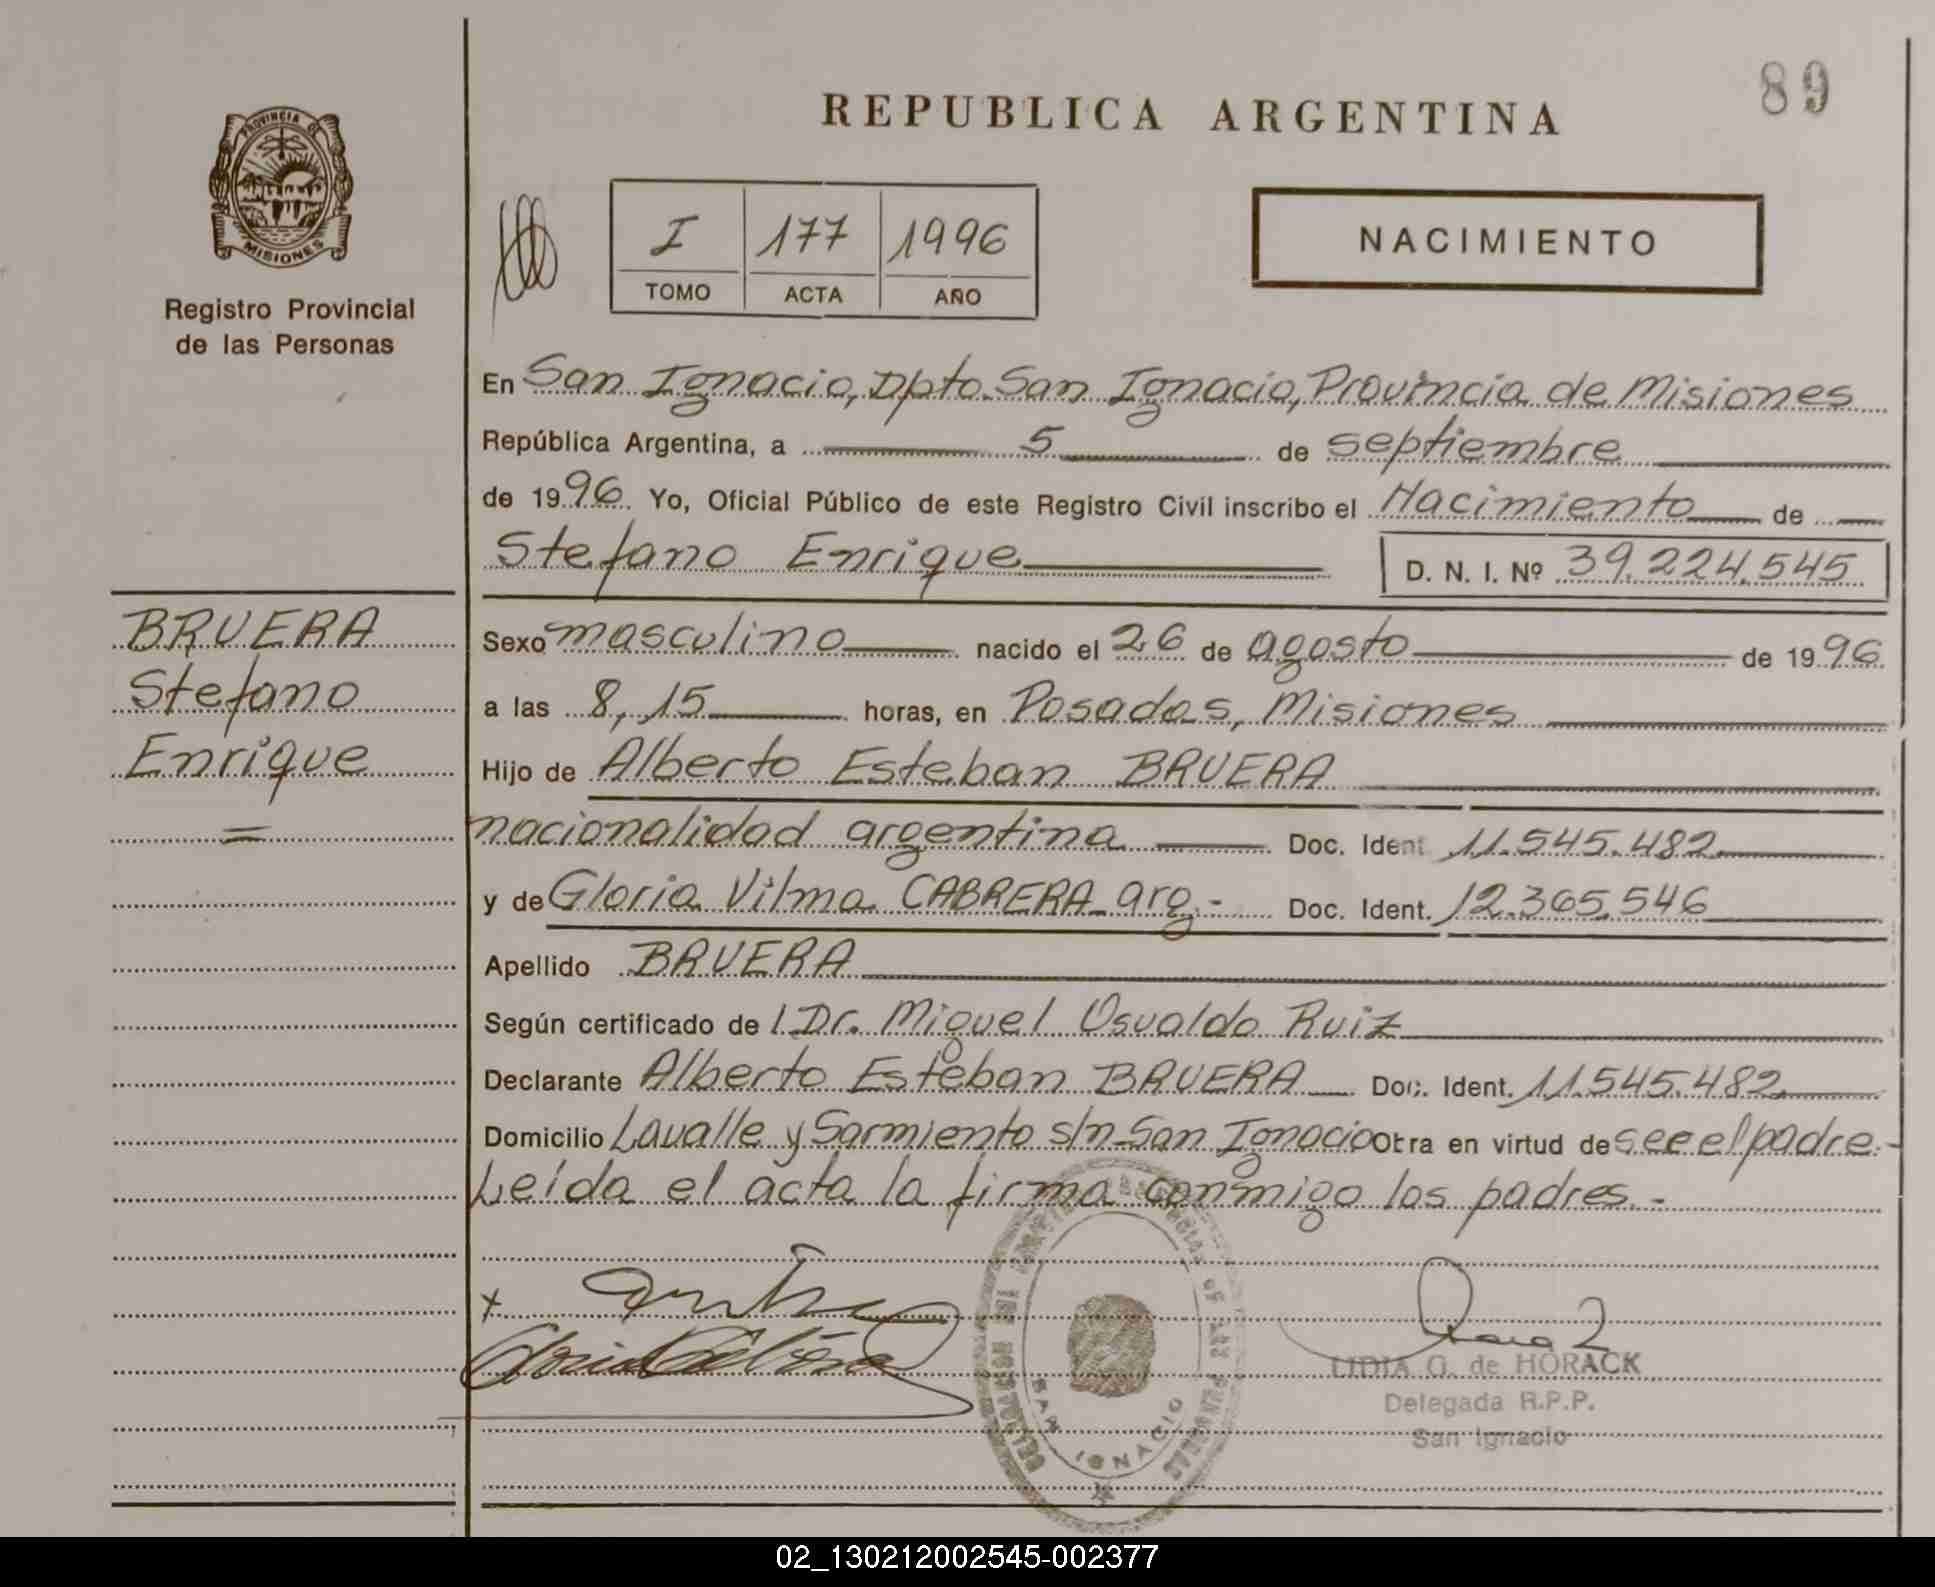 89
REPUBLICA ARGENTINA
PROVINCIA DE
MISIONES
Registro Provincial
de las Personas
I 177 1996
TOMO ACTA AÑO
NACIMIENTO
En San Ignacio, Dpto. San Ignacio, Provincia de Misiones
República Argentina, a 5 de septiembre
de 1996. Yo, Oficial Público de este Registro Civil inscribo el Nacimiento de
Stefano Enrique D. N. I. Nº 39.224.545
BRUERA
Stefano
Enrique
=
Sexo masculino nacido el 26 de agosto de 1996
a las 8,15 horas, en Posadas, Misiones
Hijo de Alberto Esteban BRUERA
nacionalidad argentina Doc. Ident. 11.545.482
y de Gloria Vilma CABRERA arg.- Doc. Ident. 12.365.546
Apellido BRUERA
Según certificado de / Dr. Miguel Osvaldo Ruiz
Declarante Alberto Esteban BRUERA Doc. Ident. 11.545.482
Domicilio Lavalle y Sarmiento s/n-San Ignacio Obra en virtud de see el padre.-
Leída el acta la firma conmigo los padres.-
LIDIA G. de HORACK
Delegada R.P.P.
San Ignacio
SAN IGNACIO
02_130212002545-002377